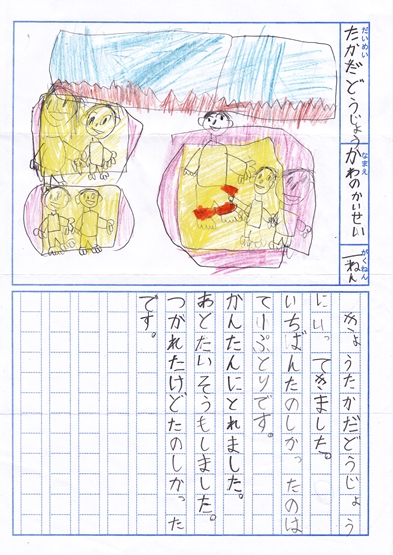 だいめい
たかだどうじょう
なまえ
かわのかいせい
がくねん
一ねん
きょうたかだどうじょう
にいってきました。
いちばんたのしかったのは
てりぷとりです。
かんたんにとれました。
あとたいそうもしました。
つがれたけどたのしかった
です。